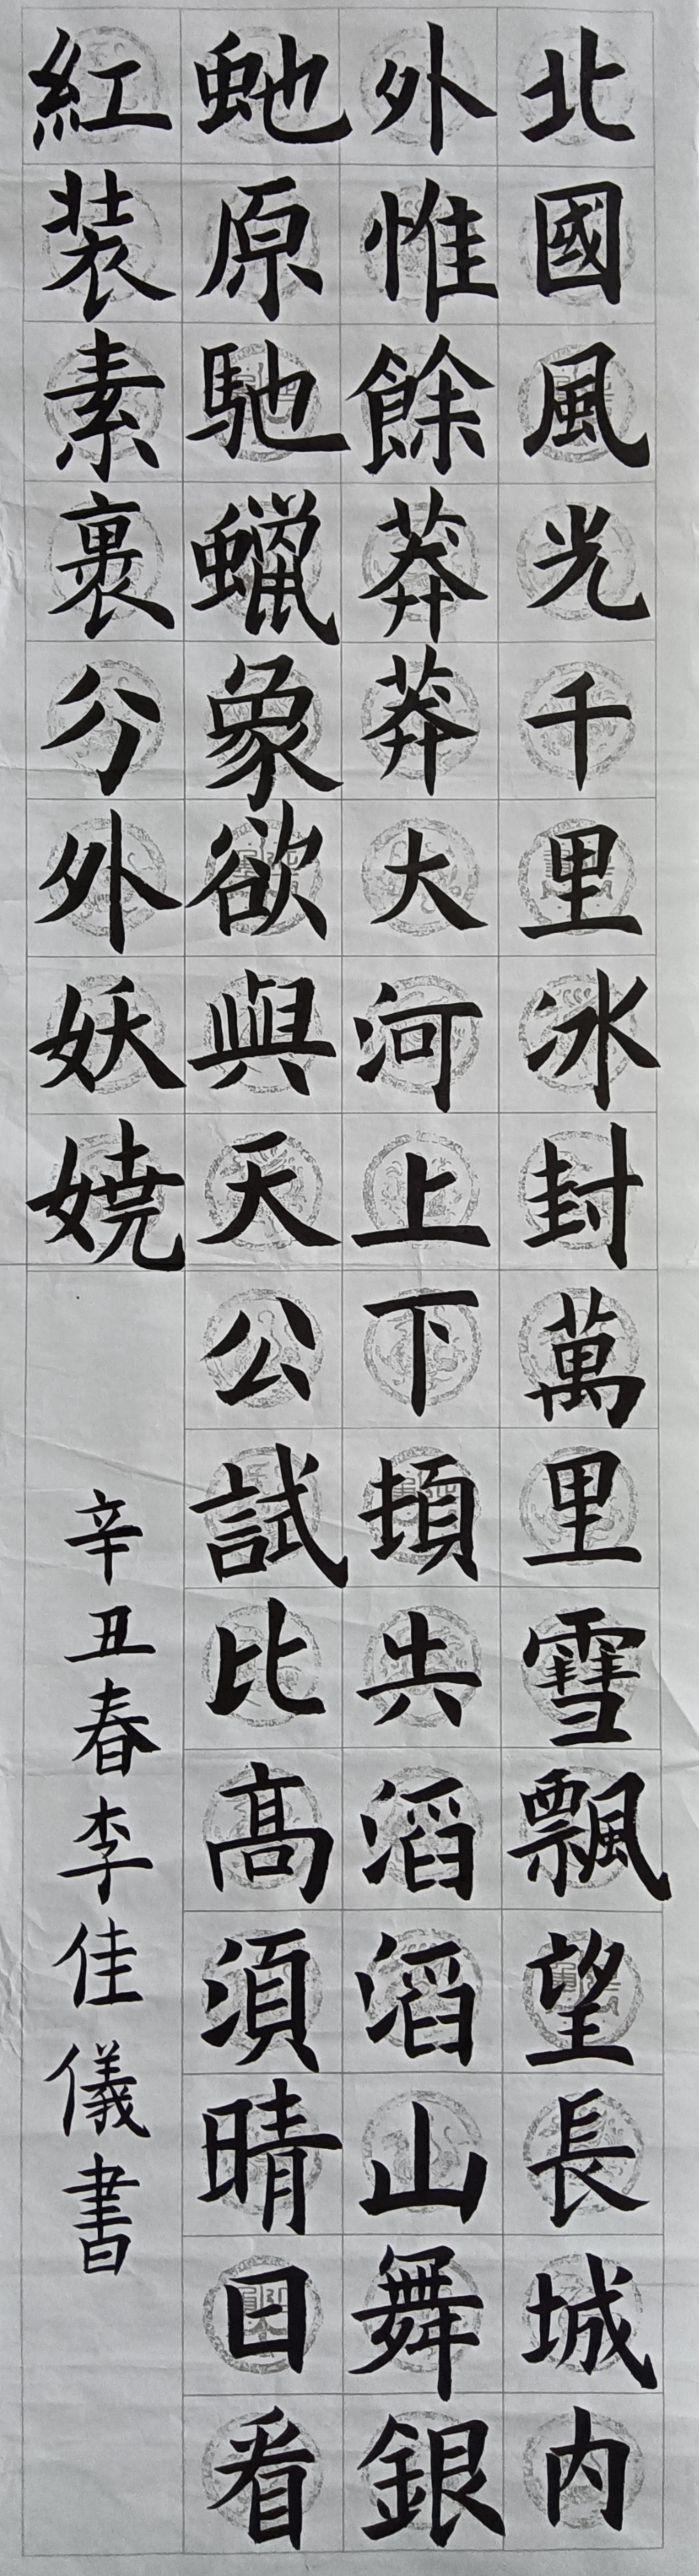 北國風光千里冰封萬里雪飄望長城内
外惟餘莽莽大河上下頓失滔滔山舞銀
虵原馳蠟象欲與天公試比高須晴日看
紅装素裹分外妖娆
辛丑春李佳儀書